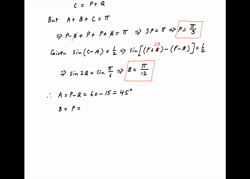 C = P+Q
But A+B+C = π
⇒ P-Q + P + P+Q = π ⇒ 3P = π ⇒ P = π/3
Given sin(C-A) = 1/2 ⇒ sin[(P+Q)-(P-Q)] = 1/2
⇒ sin2Q = sin π/6 ⇒ Q = π/12
∴ A = P-Q = 60-15 = 45°
B = P =